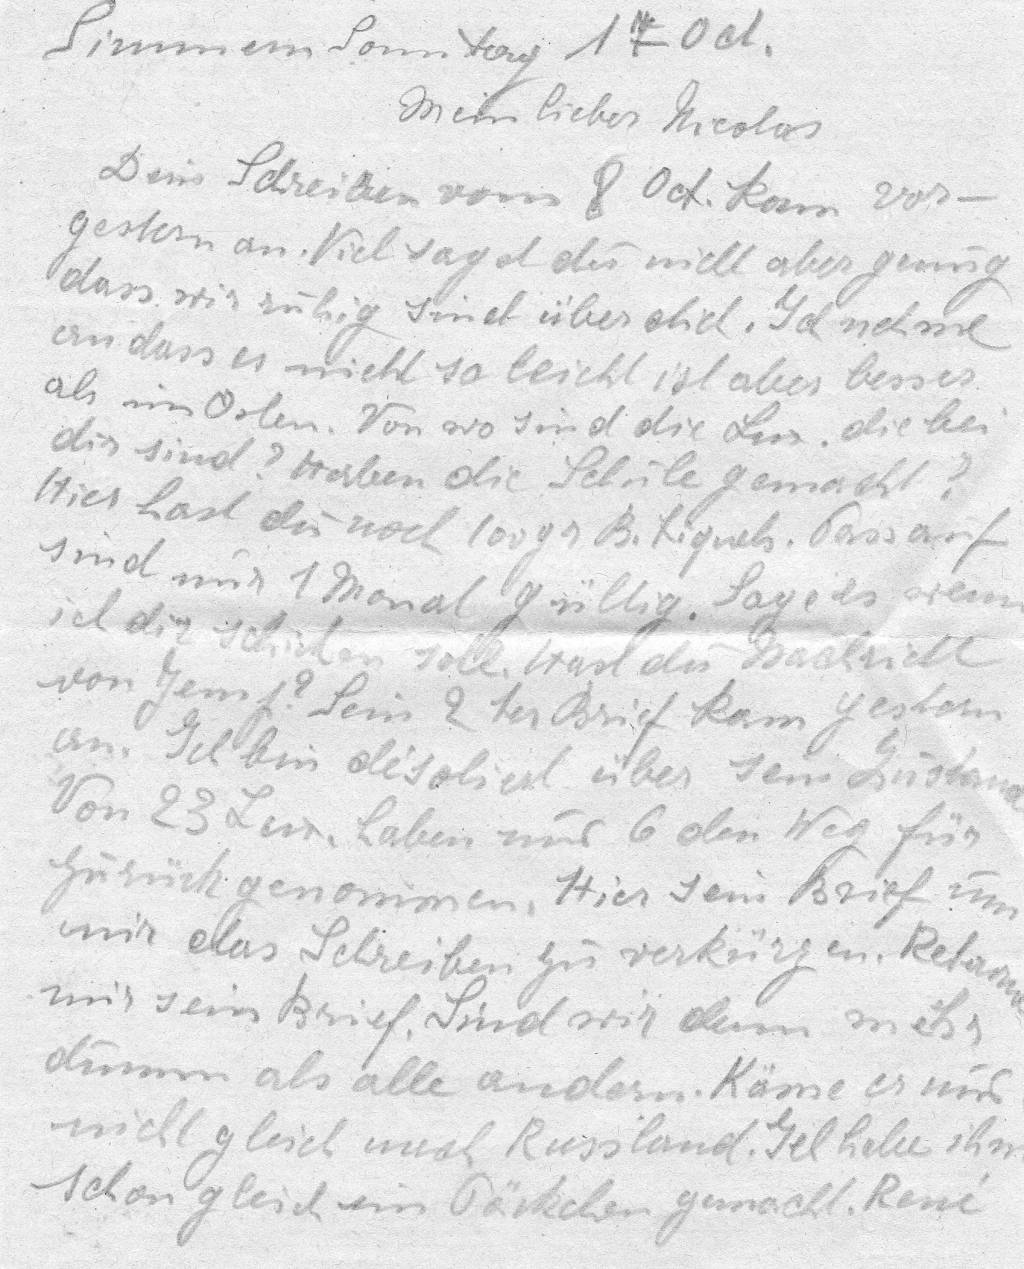 Simmern Sonntag 17 Oct.
Mein lieber Nicolas
Dein Schreiben vom 8 Oct. kam vor-
gestern an. Viel sagst du nicht aber genug
dass wir ruhig sind über dich. Ich nehme
an dass es nicht so leicht ist aber besser
als im Osten. Von wo sind die Lux. die bei
dir sind? Haben die Schule gemacht?
Hier hast du noch 100 gr B. tiquets. Pass auf
sind nur 1 Monat gültig. Sage es wenn
ich dir schicken soll. Hast du Nachricht
von Jemp? Sein 2ter Brief kam gestern
an. Ich bin désoliert über sein Zustand
Von 23 Lux. haben nur 6 den Weg für
zurück genommen. Hier sein Brief um
mir das Schreiben zu verkürzen. Retourne
mir sein Brief. Sind wir denn mehr
dumm als alle andern. Käme er nur
nicht gleich nach Russland. Ich habe ihm
schon gleich ein Päckchen gemacht. René